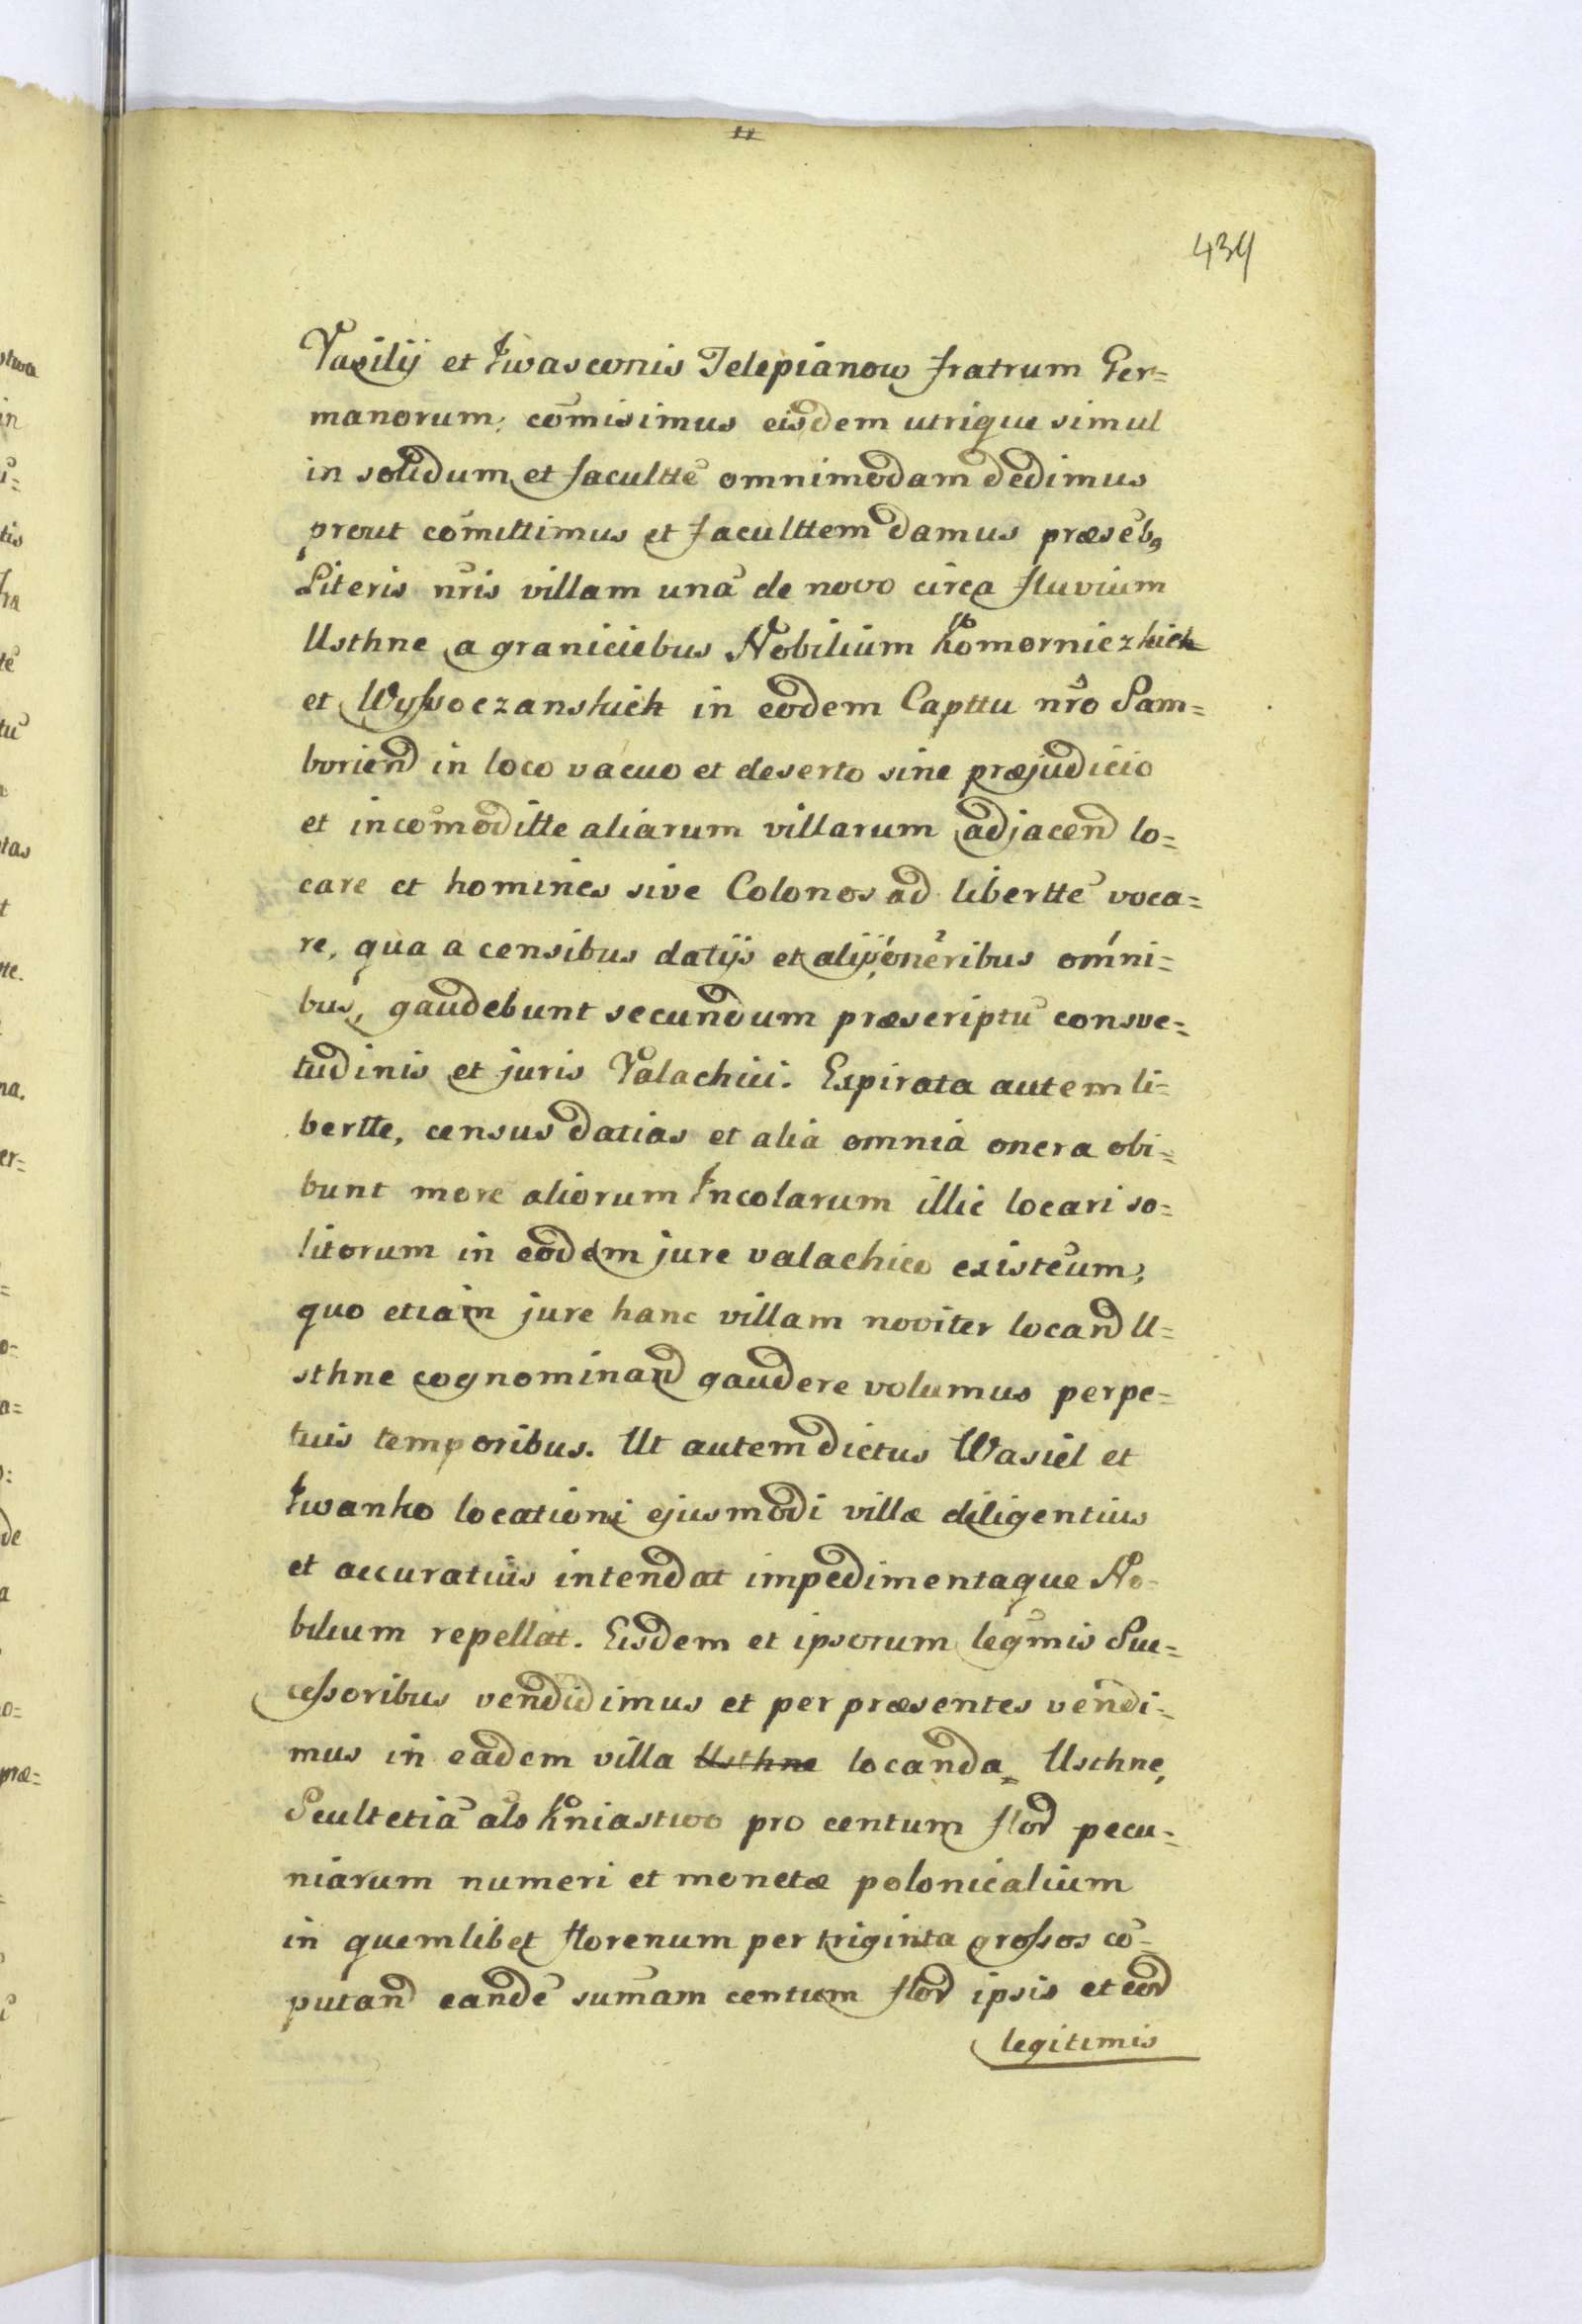 439
Vasilij et Iwasconis Telepianow fratrum Ger=
manorum; com̃isimus eisdem utrique simul
in solidum et facultte᷃ omnimodam dedimus
prout com̃ittimus et facultte᷃m damus præse᷃b9
Literis nr̃is villam una᷃ de novo circa fluvium
Usthne a graniciebus Nobilium Komorniczkich
et Wyssoczanskich in eodem Capttu nr̃o Sam=
boriend in loco vacuo et deserto sine præjudicio
et incom̃oditte aliarum villarum adjacend lo=
care et homines sive Colonos ad libertte᷃ voca=
re, qua a censibus datijs et alijs oneribus omni=
bus, gaudebunt secundum præscriptu᷃ consve=
tudinis et juris Valachici. Expirata autem li=
bertte, census datias et alia omnia onera obi=
bunt more aliorum Incolarum illic locari so=
litorum in eodem jure valachico existe᷃um;
quo etiam jure hanc villam noviter locand U=
sthne cognominand gaudere volumus perpe=
tuis temporibus. Ut autem dictus Wasiel et
Iwanko locationi ejusmodi villæ diligentius
et accuratius intendat impedimentaque No=
bilium repellat. Eisdem et ipsorum legm̃is Suc=
cessoribus vendidimus et per præsentes vendi=
mus in eadem villa Usthne locanda Usthne,
Scultetia᷃ als Kniastwo pro centum flor pecu=
niarum numeri et monetæ polonicalium
in quemlibet florenum per triginta grossos co᷃=
putand eande᷃ sum̃am centum flor ipsis et eor
legitimis